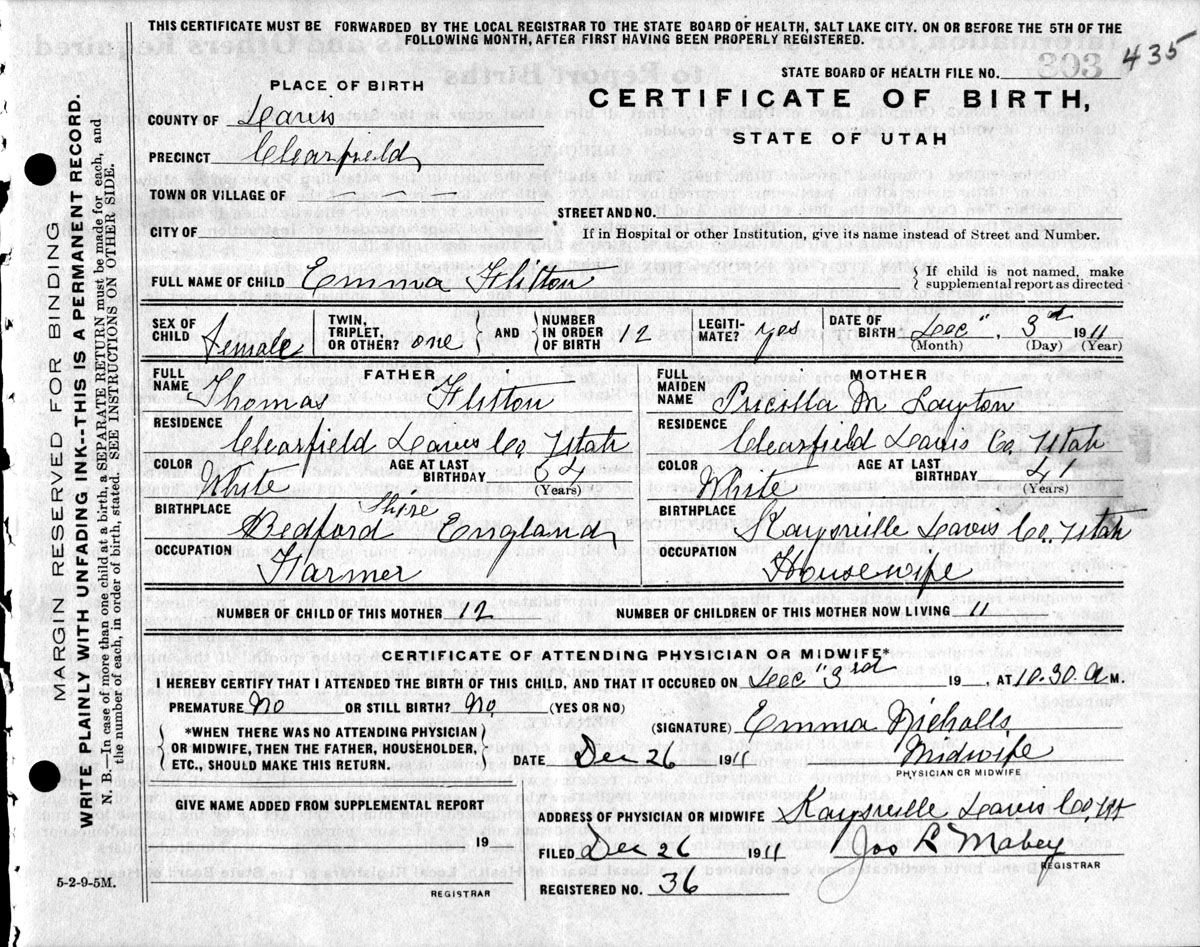 THIS CERTIFICATE MUST BE FORWARDED BY THE LOCAL REGISTRAR TO THE STATE BOARD OF HEALTH, SALT LAKE CITY. ON OR BEFORE THE 5TH OF THE
FOLLOWING MONTH, AFTER FIRST HAVING BEEN PROPERLY REGISTERED.
435
STATE BOARD OF HEALTH FILE NO. 303
PLACE OF BIRTH
CERTIFICATE OF BIRTH,
STATE OF UTAH
COUNTY OF Davis
PRECINCT Clearfield
TOWN OR VILLAGE OF — — —
STREET AND NO.
CITY OF
If in Hospital or other Institution, give its name instead of Street and Number.
FULL NAME OF CHILD Emma Flitton
{ If child is not named, make
supplemental report as directed
SEX OF CHILD Female
TWIN, TRIPLET, OR OTHER? one } AND { NUMBER IN ORDER OF BIRTH 12
LEGITI-MATE? yes
DATE OF BIRTH Dec" 3rd 1911
(Month) (Day) (Year)
FATHER
FULL NAME Thomas Flitton
RESIDENCE Clearfield Davis Co, Utah
COLOR White AGE AT LAST BIRTHDAY (Years)
BIRTHPLACE Bedford Shire England
OCCUPATION Farmer
MOTHER
FULL MAIDEN NAME Pricilla M Layton
RESIDENCE Clearfield Davis Co, Utah
COLOR White AGE AT LAST BIRTHDAY (Years)
BIRTHPLACE Kaysville Davis Co, Utah
OCCUPATION Housewife
NUMBER OF CHILD OF THIS MOTHER 12 NUMBER OF CHILDREN OF THIS MOTHER NOW LIVING 11
CERTIFICATE OF ATTENDING PHYSICIAN OR MIDWIFE*
I HEREBY CERTIFY THAT I ATTENDED THE BIRTH OF THIS CHILD, AND THAT IT OCCURED ON Dec" 3rd 19 , AT 10.30 A M.
PREMATURE No OR STILL BIRTH? No (YES OR NO)
*WHEN THERE WAS NO ATTENDING PHYSICIAN
OR MIDWIFE, THEN THE FATHER, HOUSEHOLDER,
ETC., SHOULD MAKE THIS RETURN.
(SIGNATURE) Emma Nicholls
Midwife
PHYSICIAN OR MIDWIFE
DATE Dec 26 1911
GIVE NAME ADDED FROM SUPPLEMENTAL REPORT
19
REGISTRAR
ADDRESS OF PHYSICIAN OR MIDWIFE Kaysville Davis Co, Ut
FILED Dec 26 1911 Jos R Mabey
REGISTRAR
REGISTERED NO. 36
5-2-9-5M.
MARGIN RESERVED FOR BINDING
WRITE PLAINLY WITH UNFADING INK--THIS IS A PERMANENT RECORD.
N. B.—In case of more than one child at a birth, a SEPARATE RETURN must be made for each, and
the number of each, in order of birth, stated. SEE INSTRUCTIONS ON OTHER SIDE.